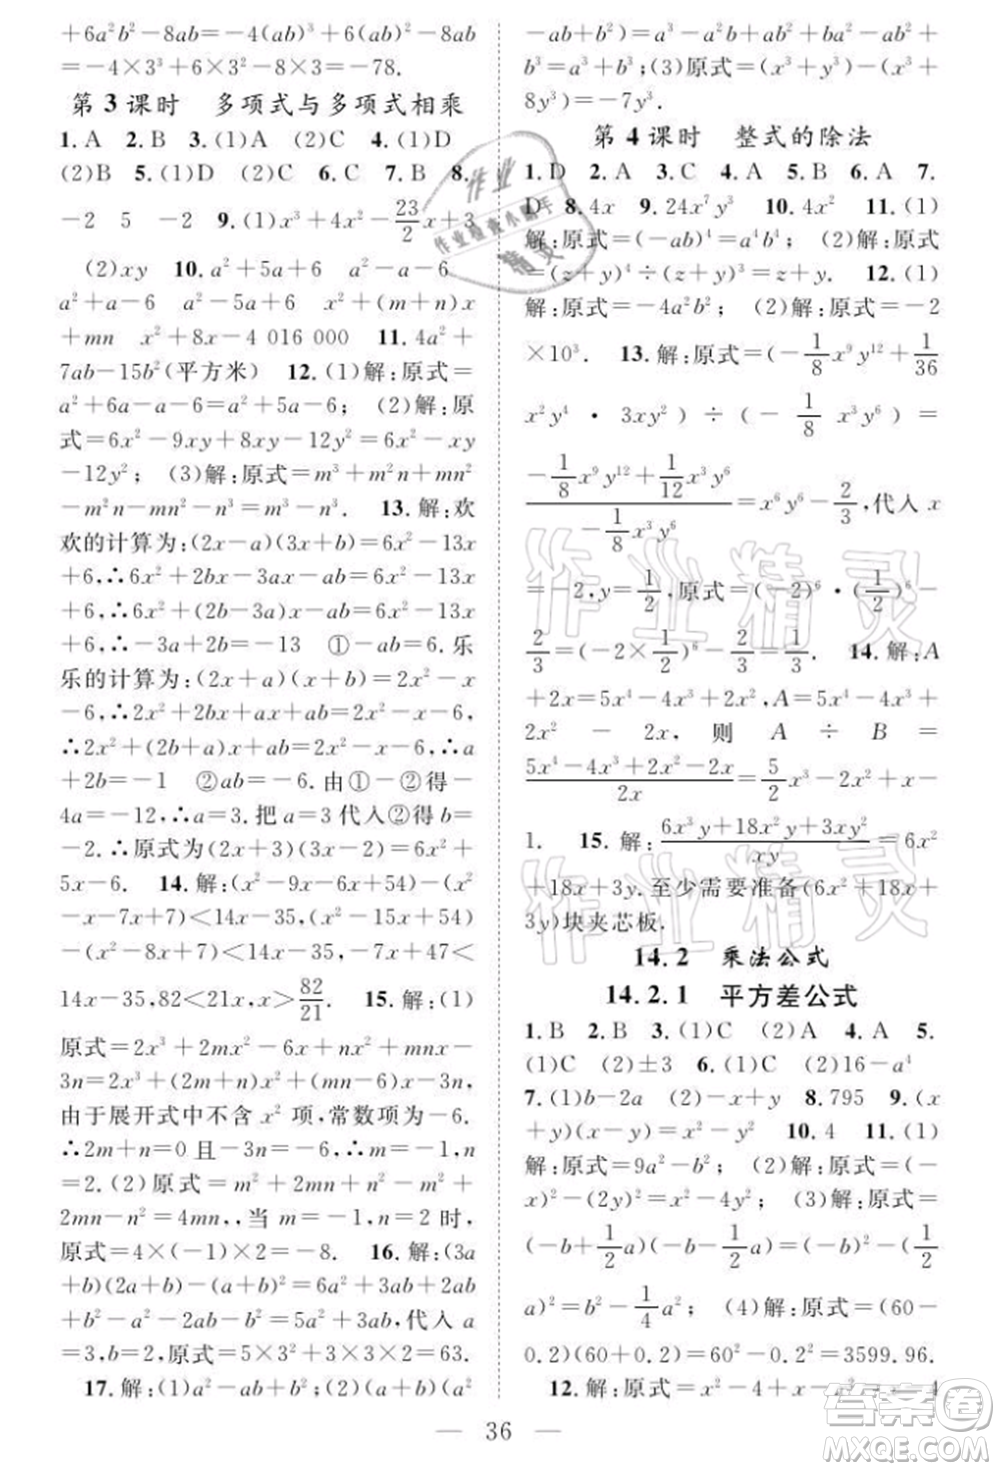 +6a²b²-8ab=-4(ab)³+6(ab)²-8ab
=-4×3³+6×3²-8×3=-78.
第3课时　多项式与多项式相乘
1. A　2. B　3. (1)A　(2)C　4. (1)D
(2)B　5. (1)D　(2)C　6. B　7. B　8.
-2　5　-2　9. (1)x³+4x²-23/2x+3
(2)xy　10. a²+5a+6　a²-a-6
a²+a-6　a²-5a+6　x²+(m+n)x
+mn　x²+8x-4 016 000　11. 4a²+
7ab-15b²(平方米)　12. (1)解:原式=
a²+6a-a-6=a²+5a-6; (2)解:原
式=6x²-9xy+8xy-12y²=6x²-xy
-12y²; (3)解:原式=m³+m²n+mn²
-m²n-mn²-n³=m³-n³.　13. 解:欢
欢的计算为:(2x-a)(3x+b)=6x²-13x
+6,∴6x²+(2b-3a)x-ab=6x²-13x
+6,∴2b-3a=-13　①-ab=6.乐
乐的计算为:(2x+a)(x+b)=2x²-x-6,
∴2x²+(2b+a)x+ab=2x²-x-6,∴a
+2b=-1　②ab=-6.由①-②得-
4a=-12,∴a=3.把a=3代入②得b=
-2.∴原式为(2x+3)(3x-2)=6x²+
5x-6.　14. 解:(x²-9x-6x+54)-(x²
-x-7x+7)<14x-35,(x²-15x+54)
-(x²-8x+7)<14x-35,-7x+47<
14x-35,82<21x,x>82/21.　15. 解:(1)
原式=2x³+2mx²-6x+nx²+mnx-
3n=2x³+(2m+n)x²+(mn-6)x-3n
由于展开式中不含x²项,常数项为-6.
∴2m+n=0且-3n=-6.∴m=-1,n
=2.(2)原式=m²+2mn+n²-(m²-
2mn-n²=4mn,,当m=-1,n=2时,
原式=4×(-1)×2=-8.　16. 解:(3a
+b)(2a+b)-(a+b)²=6a²+3ab+2ab
+b²-a²-2ab-b²=5a²+3ab,代入a
=3,b=2,原式=5×3²+3×3×2=63.
17. 解:(1)a²-ab+b²;(2)(a+b)(a²
-ab+b²)=a³-a²b+ab²+a²b-ab²+
b³=a³+b³;(3)原式=(x³+y³)-(x³+
8y³)=-7y³.
第4课时　整式的除法
1. D　2. A　3. C　4. C　5. A　6. A　7.
D　8. 4x　9. 24x⁷y³　10. 4x²　11. (1)
解:原式=(-ab)⁴=a⁴b⁴; (2)解:原式
=(z+y)⁴÷(z+y)³=z+y.　12. (1)
解:原式=-4a²b²; (2)解:原式=-2
×10³.　13. 解:原式=(-1/8x⁹y¹²+1/36
x²y⁴·3xy²)÷(-1/8x³y⁶)=
(-1/8x⁹y¹²+1/12x³y⁶)/(-1/8x³y⁶)=x⁶y⁶-2/3,代入x
=-2,y=1/2,原式=(-2)⁶·(1/2)⁶-
2/3=(-2×1/2)⁶-2/3=1/3.　14. 解:A
+2x=5x⁴-4x³+2x²,A=5x⁴-4x³+
2x²-2x,则A÷B=
(5x⁴-4x³+2x²-2x)/2x=5/2x³-2x²+x-
1.　15. 解:(6x³y+18x²y+3xy²)/xy=6x²
+18x+3y.至少需要准备(6x²+18x+
3y)块夹芯板.
14.2　乘法公式
14.2.1　平方差公式
1. B　2. B　3. (1)C　(2)A　4. A　5.
(1)C　(2)±3　6. (1)C　(2)16-a⁴
7. (1)b-2a　(2)-x+y　8. 795　9. (x
+y)(x-y)=x²-y²　10. 4　11. (1)
解:原式=9a²-b²; (2)解:原式=(-
x)²-(2y)²=x²-4y²; (3)解:原式=
(-b+1/2a)(-b-1/2a)=(-b)²-(1/2
a)²=b²-1/4a²; (4)解:原式=(60-
0.2)(60+0.2)=60²-0.2²=3599.96.
12. 解:原式=x²-4+4x-x²=4x-4
36
作业精灵
答案圈
MXQE.COM